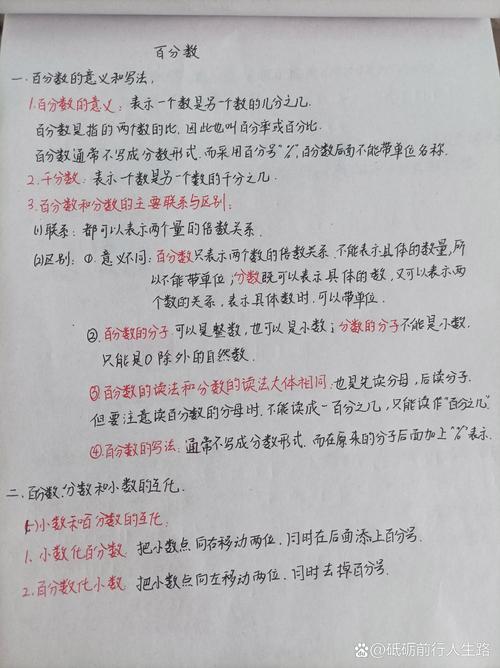 百分数
一.百分数的意义和写法,
1.百分数的意义:表示一个数是另一个数的几分之几.
百分数是指的两个数的比,因此也叫百分率或百分比.
百分数通常不写成分数形式.而采用百分号"%",百分数后面不能带单位名称.
2.千分数:表示一个数是另一个数的千分之几.
3.百分数和分数的主要联系与区别:
⑴联系:都可以表示两个量的倍数关系.
⑵区别:①.意义不同:百分数只表示两个数的倍数关系.不能表示具体的数量,所
以不能带单位;分数既可以表示具体的数,又可以表示两
个数的关系,表示具体数时.可以带单位.
②.百分数的分子可以是整数,也可以是小数;分数的分子不能是小数.
只能是0除外的自然数.
③百分数的读法和分数的读法大体相同.也是先读分母,后读分子.
但要注意读百分数的分母时.不能读成一百分之几,只能读作"百分之几".
④.百分数的写法:通常不写成分数形式.而在原来的分子后面加上"%"表示.
二.百分数.分数和小数的互化.
(一)小数和百分数的互化.
1、小数化百分数 把小数点向右移动两位.同时在后面添上百分号.
2.百分数化小数 把小数点向左移动两位.同时去掉百分号.
@砥砺前行人生路